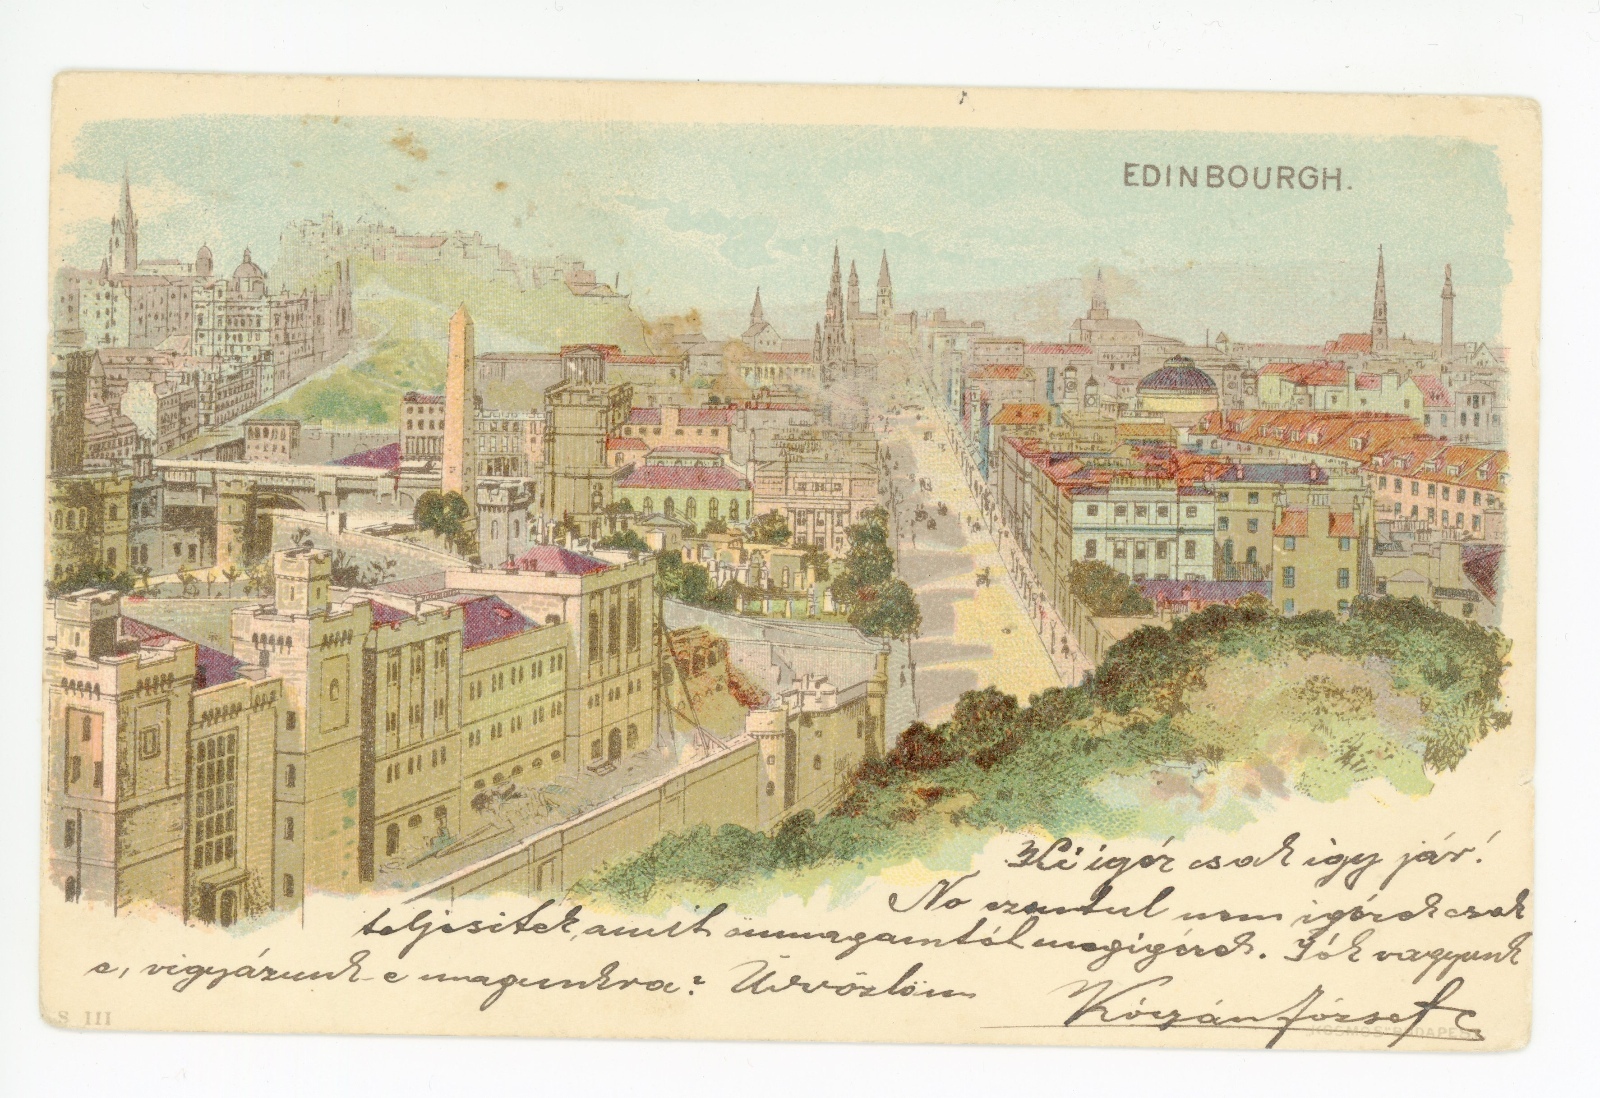 EDINBOURGH.
Ki igér csak igy jár!
No ezentul nem igérek csak
teljesitek, amit önmagamtól megigérek. Jók vagyunk
e, vigyázunk-e magunkra? Üdvözlöm
József
S III
"KOSMOS" BUDAPEST